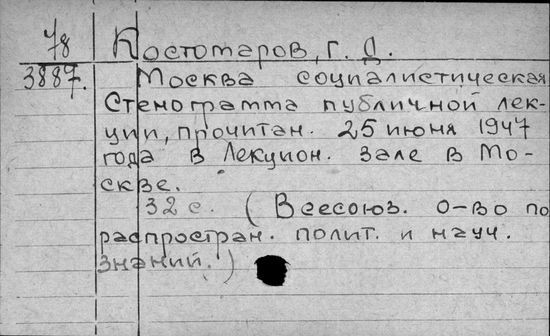 78 Костомаров, Г. Д.
3887. Москва социалистическая
Стенограмма публичной лек-
ции, прочитан. 25 июня 1947
года в Лекцион. зале в Мо-
скве.
32 с. (Всесоюз. о-во по
распростран. полит. и науч.
знаний.)